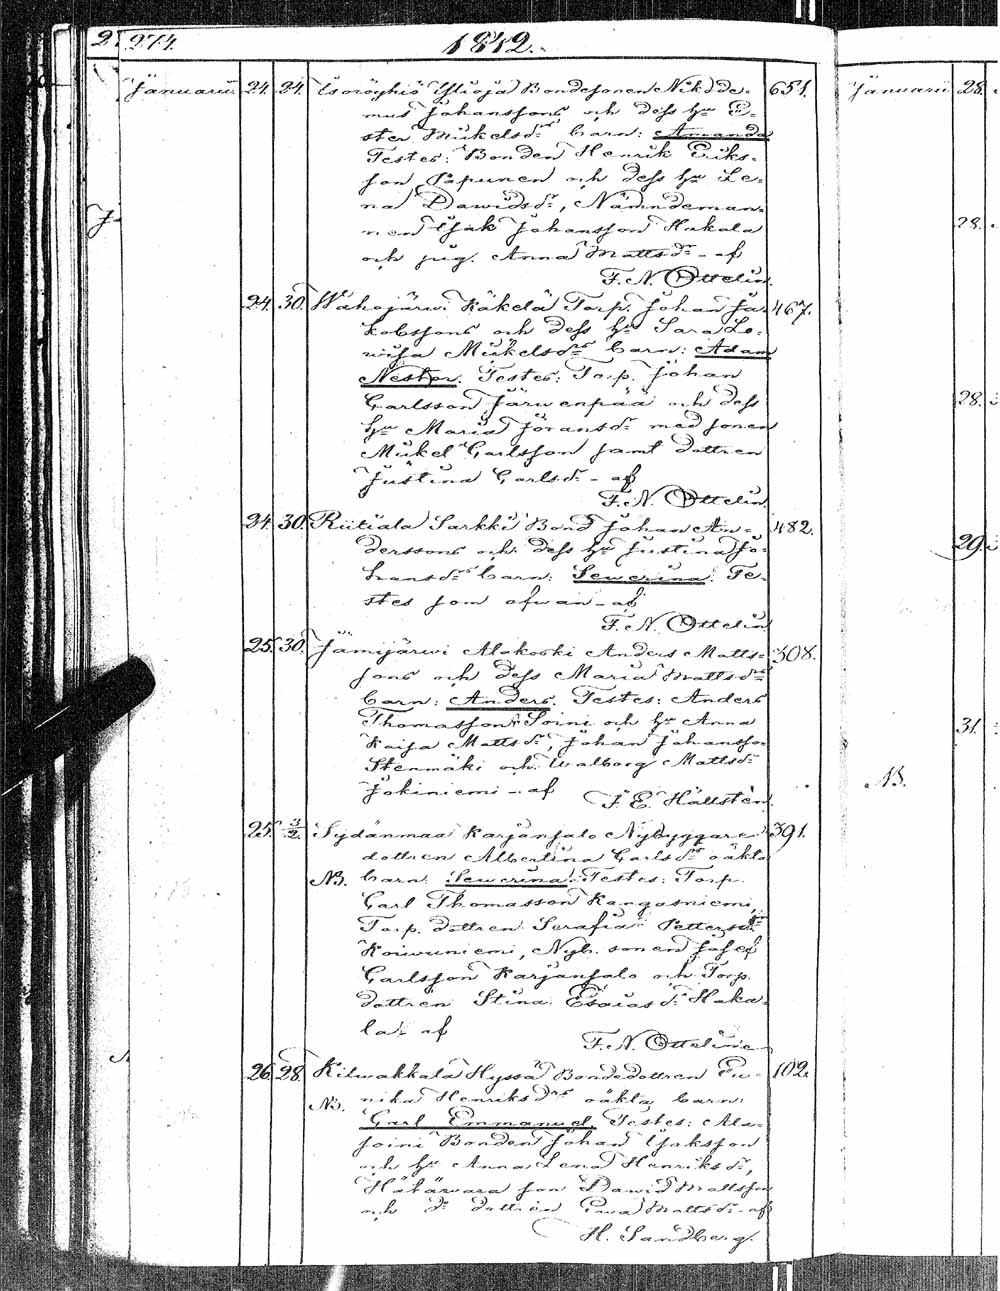 274.
1842.
Januarii 24. 24. Isoröyhiö Yliojа Bondesonen Nikode- 651.
mus Johanssons och dess hu E-
ster Mickelsdr barn: Amanda
Testes: Bonden Henrik Eriks-
son Papunen och dess hu Le-
na Dawidsdr, Nämndeman-
nen Isak Johansson Hakala
och pig. Anna Mattsdr - af
F. N. Ottelin.
24. 30. Wahojärwi Käkelä Torp. Johan Ja- 467.
kobssons och dess hu Sara Lo-
wisa Mickelsdrs barn: Adam
Nestor. Testes: Torp. Johan
Carlsson Järwenpää och dess
hu Maria Göransdr med sonen
Mickel Carlsson samt dottren
Justina Carlsdr - af
F. N. Ottelin
24. 30. Riitiala Sarkki Bond Johan An- 482.
derssons och dess hu Justina Jo-
hansdrs barn: Sewerina. Te-
stes som ofwan - af
F. N. Ottelin
25. 30. Jämijärwi Alakoski Anders Matts- 308.
sons och dess Maria Mattsdrs
barn: Anders. Testes: Anders
Thomasson Soini och hu Anna
Kaisa Mattsdr, Johan Johansso-
Stenmäki och Walborg Mattsdr
Jokiniemi - af
F. E. Hällsten.
25. 3/2. Sydänmaa Karjansalo Nybyggare 391.
dottren Albertina Carlsdrs oäkta
NB. barn. Sewerina. Testes: Torp.
Carl Thomasson Kangasniemi,
Torp. dottren Serafia Pettersdr
Koiwuniemi, Nyb. sonen Josef
Carlsson Karjansalo och Torp.
dottren Stina Esaiasdr Haka-
la - af
F. N. Ottelin
26. 28. Kilwakkala Hyssä Bondedottren Eu- 102.
nika Henriksdrs oäkta barn:
NB.
Carl Emmanuel. Testes: Ala-
soini Bonden Johan Isaksson
och hu Anna Lena Henriksdr,
son Dawid Mattsson
och dr dottren Ewa Mattsdr - af
H. Sandberg.
Januarii 28.
28.
28.
29.
31.
NB.